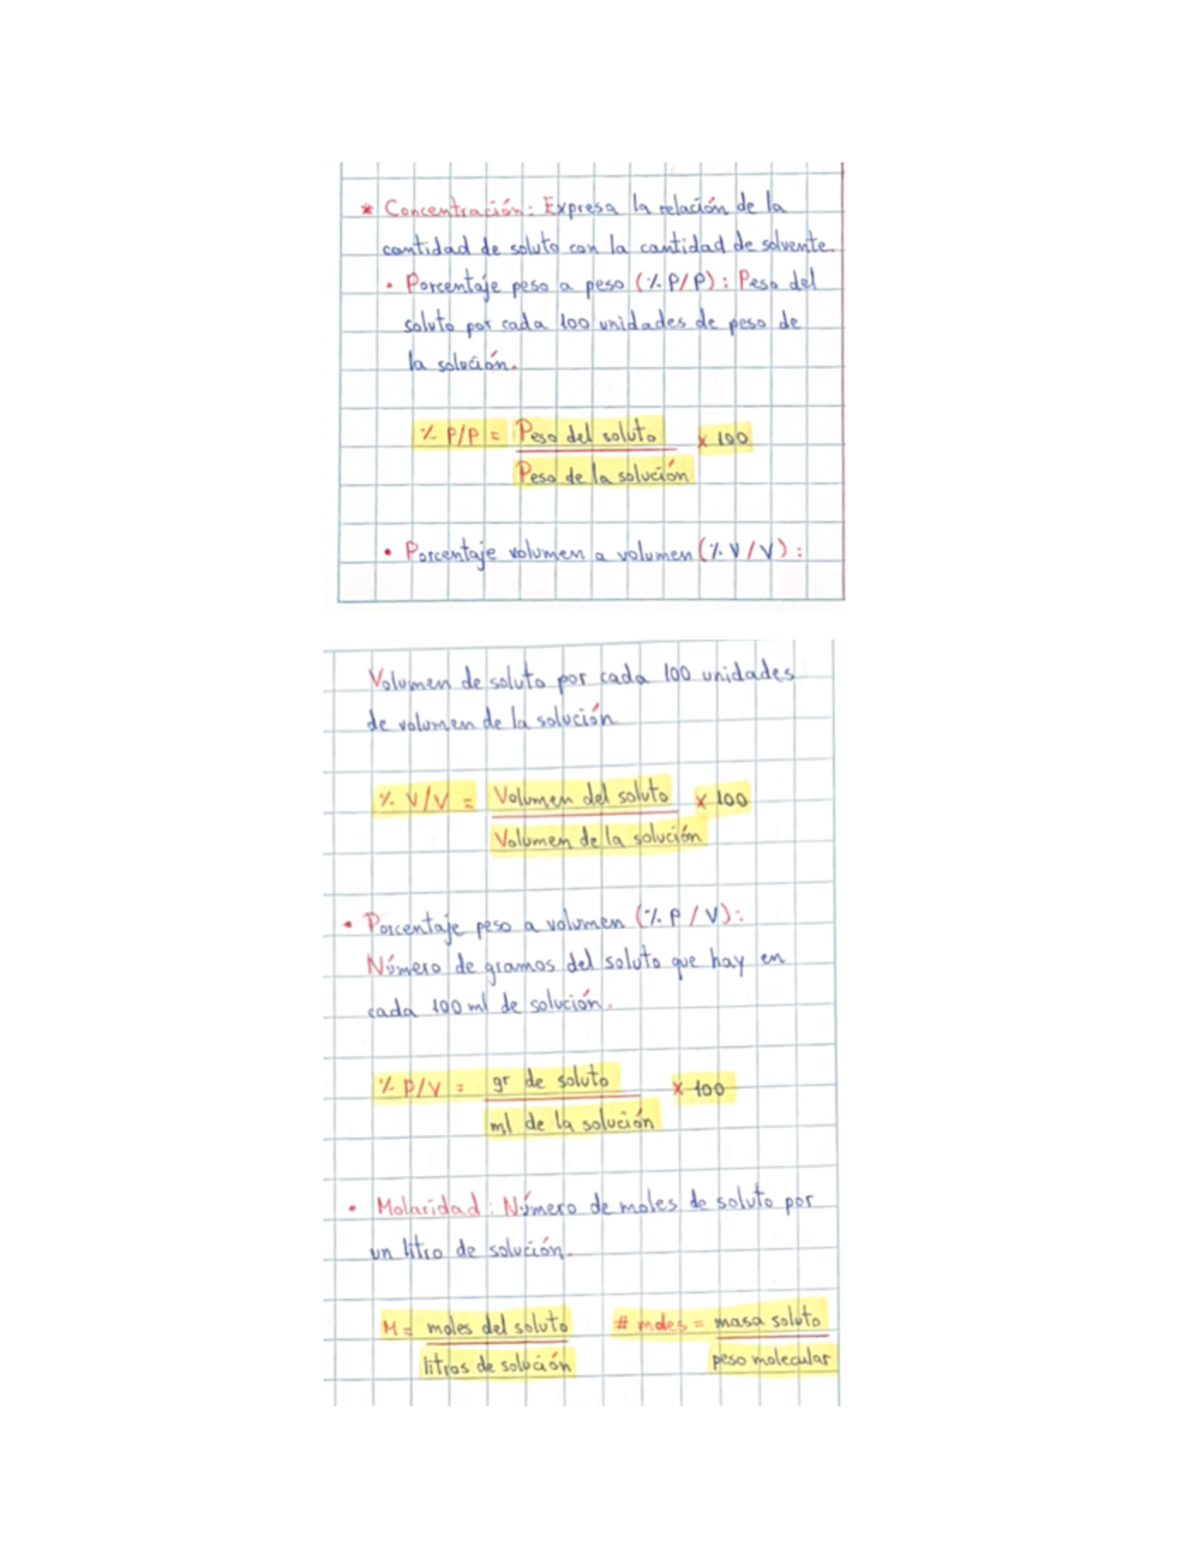 * Concentración: Expresa la relación de la
cantidad de soluto con la cantidad de solvente.
• Porcentaje peso a peso (% P/P): Peso del
soluto por cada 100 unidades de peso de
la solución.
% P/P = Peso del soluto x 100
Peso de la solución
• Porcentaje volumen a volumen (% V/V):
Volumen de soluto por cada 100 unidades
de volumen de la solución
% V/V = Volumen del soluto x 100
Volumen de la solución
• Porcentaje peso a volumen (% P/V):
Número de gramos del soluto que hay en
cada 100 ml de solución.
% P/V = gr de soluto x 100
ml de la solución
• Molaridad: Número de moles de soluto por
un litro de solución.
M = moles del soluto # moles = masa soluto
litros de solución peso molecular